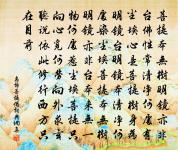 菩提本無樹明鏡亦非
台佛性常清淨何處有
塵埃心是菩提樹身為
明鏡台明鏡本清淨何
處染塵埃菩提本無樹
明鏡亦非台本來無一
物何處惹塵埃菩提只
向心覓何勞向外求玄
聽說依此修行西方只
在目前